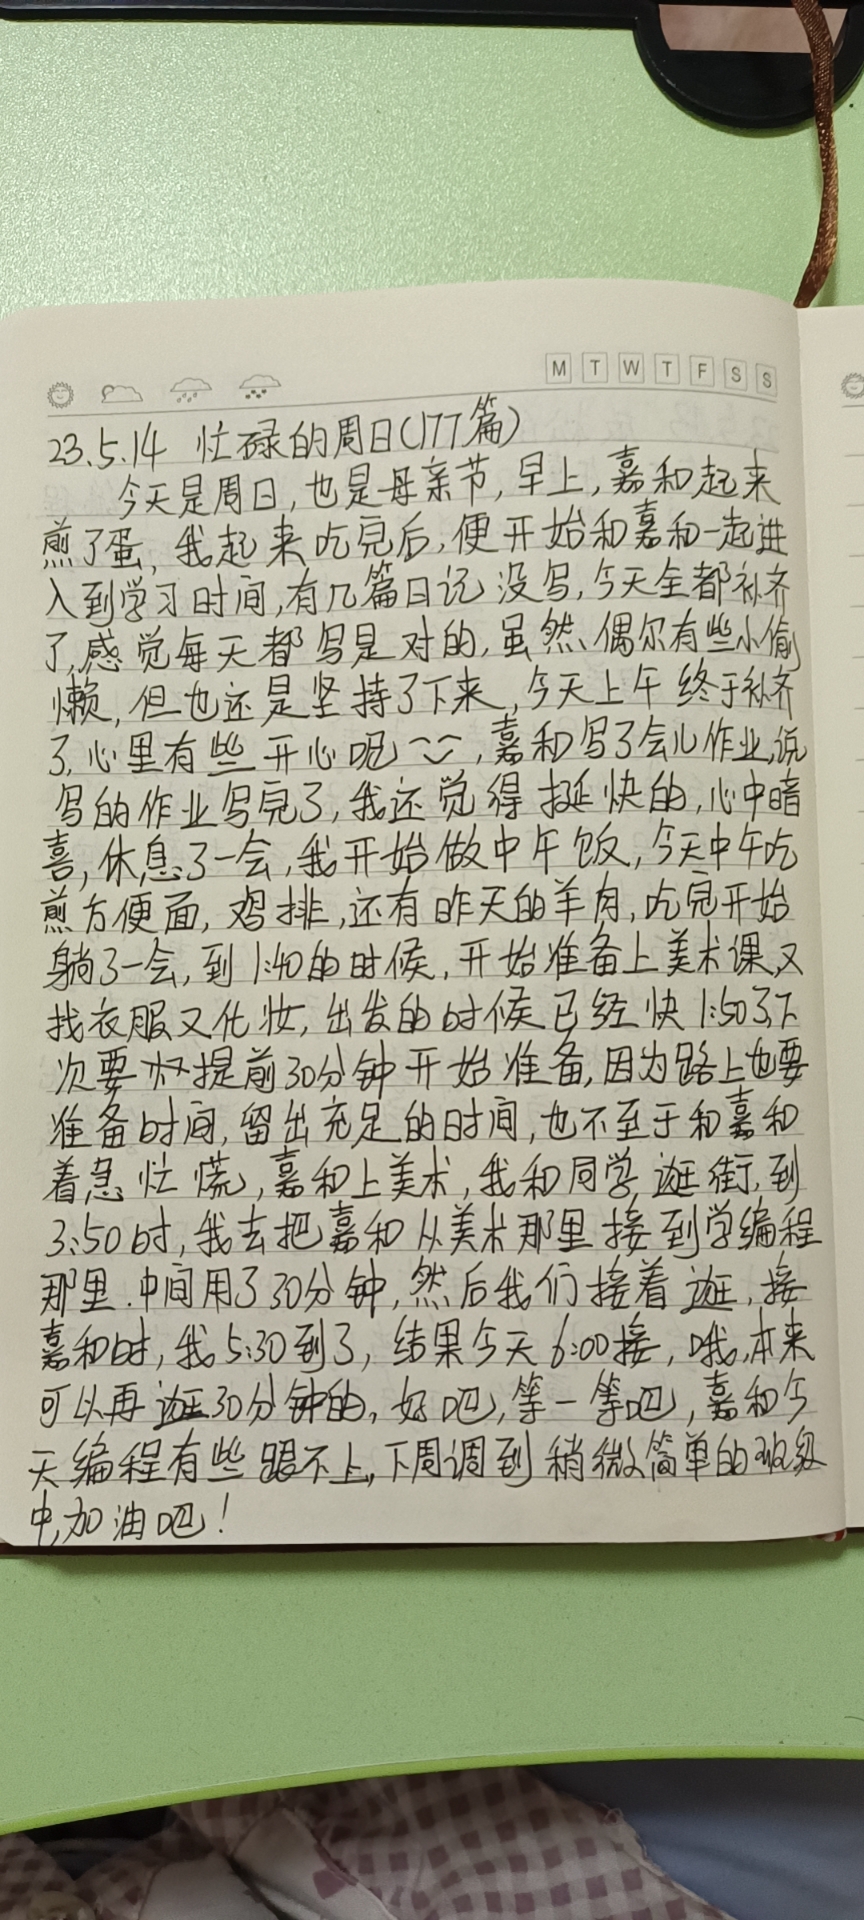 M T W T F S S
23.5.14 忙碌的周日(177篇)
今天是周日,也是母亲节,早上,嘉和起来
煎了蛋,我起来吃完后,便开始和嘉和一起进
入到学习时间,有几篇日记没写,今天全都补齐
了,感觉每天都写是对的,虽然、偶尔有些小偷
懒,但也还是坚持了下来,今天上午终于补齐
了,心里有些开心呢,嘉和写了会儿作业,说
写的作业写完了,我还觉得挺快的,心中暗
喜,休息了一会,我开始做中午饭,今天中午吃
煎方便面,鸡排,还有昨天的羊肉,吃完开始
躺了一会,到1:40的时候,开始准备上美术课,又
找衣服又化妆,出发的时候已经快1:50了,下
次要提前30分钟开始准备,因为路上也要
准备时间,留出充足的时间,也不至于和嘉和
着急忙慌,嘉和上美术,我和同学逛街,到
3:50时,我去把嘉和从美术那里接到学编程
那里.中间用了30分钟,然后我们接着逛,接
嘉和时,我5:30到了,结果今天6:00接,哦,本来
可以再逛30分钟的,好吧,等一等吧,嘉和今
天编程有些跟不上,下周调到稍微简单的班级
中,加油吧!